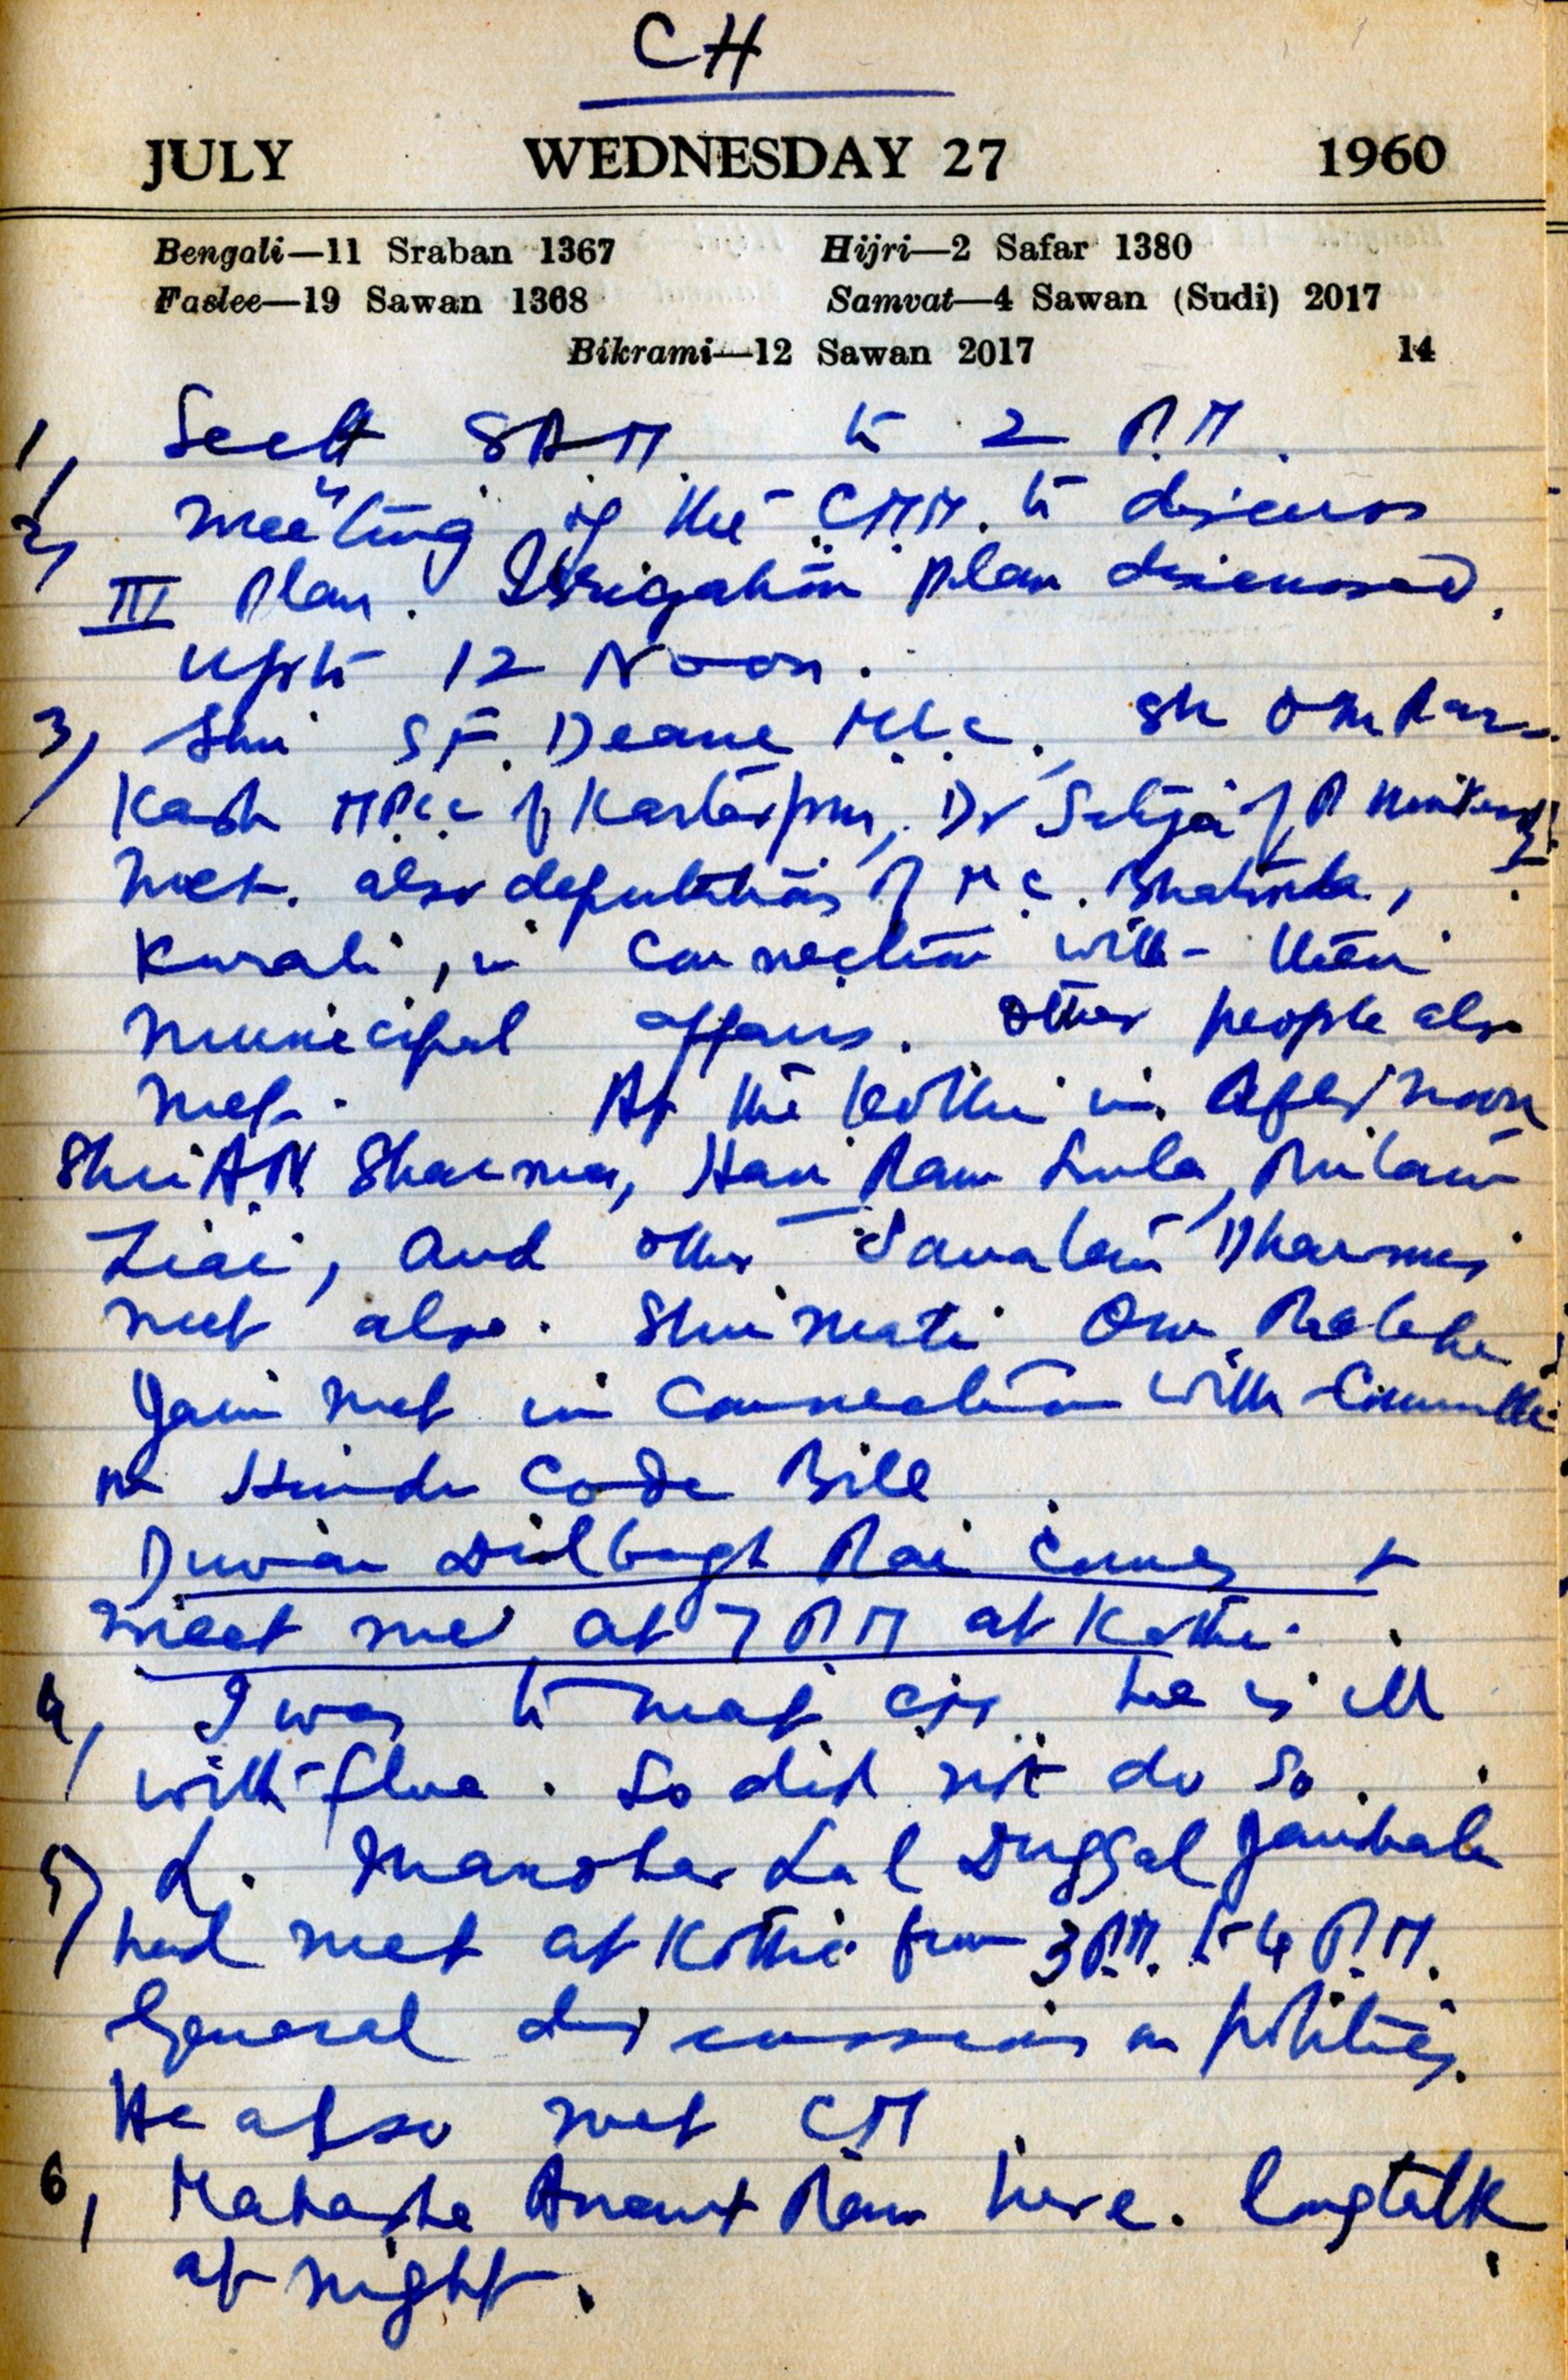 CH
JULY WEDNESDAY 27 1960
Bengali—11 Sraban 1367 Hijri—2 Safar 1380
Faslee—19 Sawan 1368 Samvat—4 Sawan (Sudi) 2017
Bikrami—12 Sawan 2017 14
1, Sectt 8 AM to 2 P.M.
2, Meeting of the CMM. to discuss
III Plan. Irrigation plan discussed.
upto 12 Noon.
3, Shri S.F. Deane M.L.C., Sh Om Par-
Kash of Kartarpur, Dr of P
met. also deputations of M.C. Bhatinda,
Kurali, in connection with their
Municipal affairs. Other people also
met. At the Kothi in Afternoon
Shri A.N. Sharma, Hari Ram
and other Sanatan Dharmis
met also. Shrimati Om
Jain met in connection with Committee
on Hindu Code Bill
Diwan Dilbagh Rai comes +
meet me at 7 PM at Kothi.
4, I was to meet he is ill
with flue. So did not do so.
5) L. Manohar Lal Duggal
had met at Kothi from 3 P.M. to 4 P.M.
General discussions on politics.
He also met CM
6, Mahashe Anant Ram here. long talk
at night.